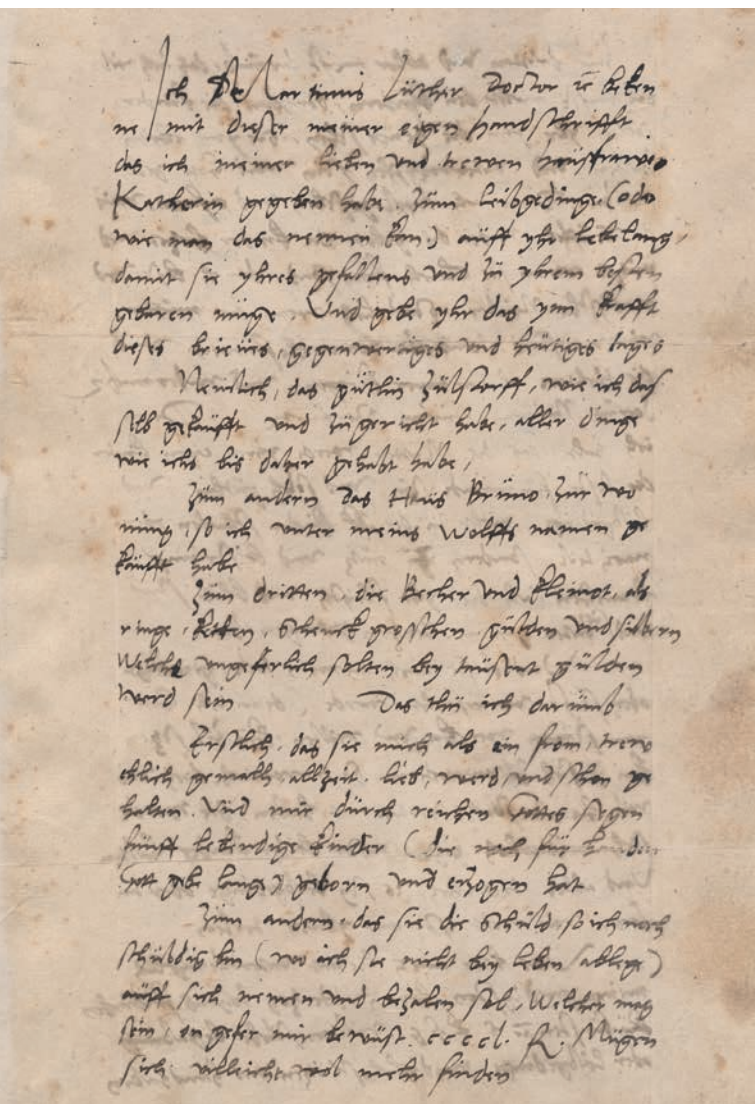 Ich Martinus Luther Doctor etc beken
ne mit dieser meiner eigen handschrifft
das ich meiner lieben vnd trewen hausfrawen
Katherin gegeben habe. zum leibgedinge (odder
wie man das nennen kan) auff yhr lebelang,
damit sie yhres gefallens vnd zu yhrem besten
gebaren muge, Vnd gebe yhr das ynn krafft
dieses brieues, gegenwertiges vnd heutiges tages
Nemlich, das gutlin Zulstorff, wie ich dass
selb gekaufft vnd zugericht habe, aller dinge
wie ichs bis daher gehabt habe,
Zum andern das Haus Bruno zur wo
nung, so ich vnter meins Wolffs namen ge
kaufft habe
Zum dritten, die Becher vnd kleinot, als
ringe, keten, schenckgroschen gulden vnd silbern
Welche vngeferlich solten bey tausent gulden
werd sein Das thu ich darumb
Erstlich, das sie mich als ein from, trew
ehlich gemalh allzeit lieb, werd, vnd schon ge
halten. Vnd mir durch reichen Gottes segen
funff lebendige kinder (die noch fur handen
Gott gebe lange) geborn vnd erzogen hat
Zum andern, das sie die schuld so ich noch
schuldig bin (wo ich sie nicht bey leben ablege)
auff sich nemen vnd bezalen sol, Welcher mag
sein, vngefer mir bewust, ccccl. fl. Mugen
sich villeicht wol mehr finden